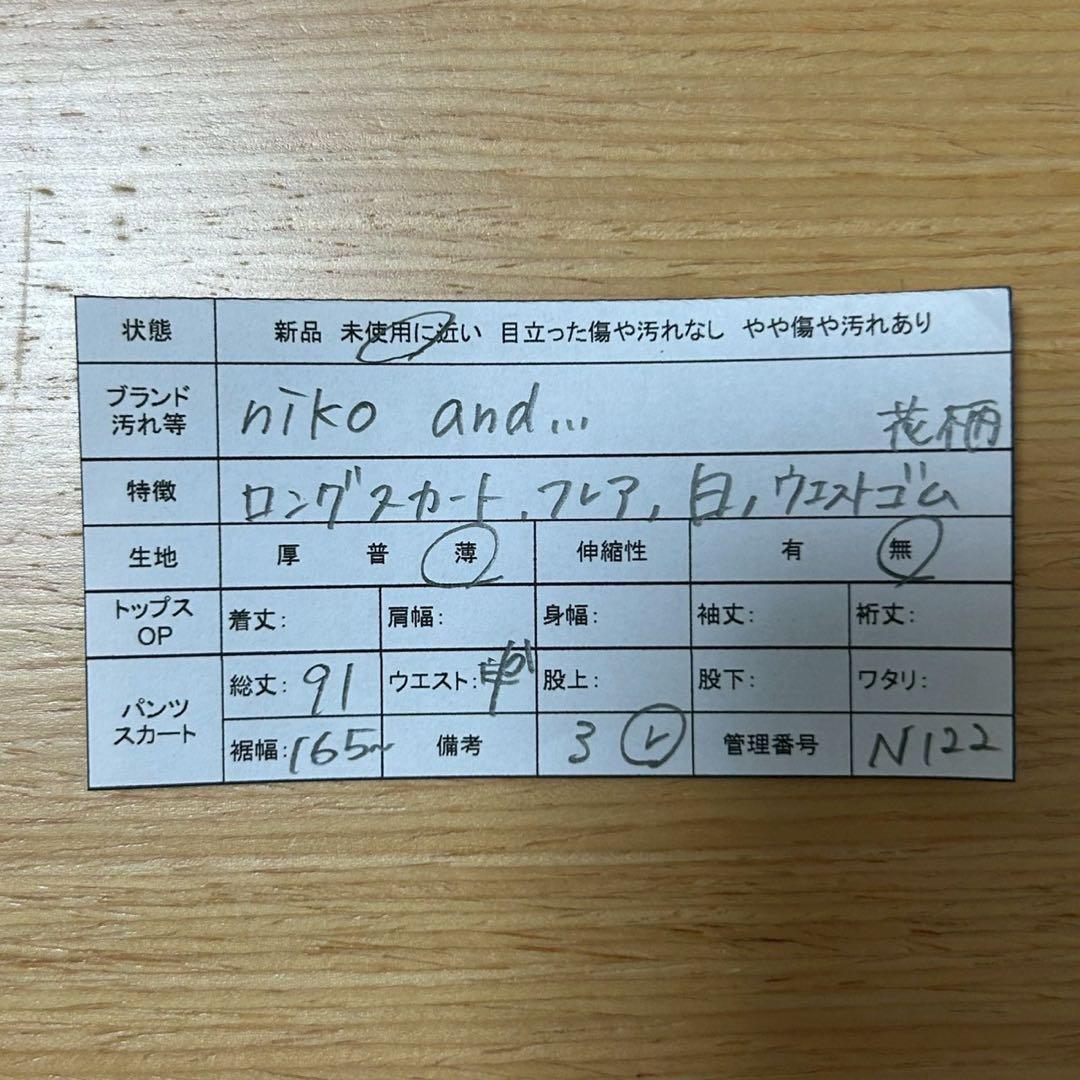 状態 新品 未使用に近い 目立った傷や汚れなし やや傷や汚れあり
ブランド
汚れ等 niko and... 花柄
特徴 ロングスカート, フレア, 白, ウエストゴム
生地 厚 普 薄 伸縮性 有 無
トップス
OP 着丈: 肩幅: 身幅: 袖丈: 裄丈:
パンツ
スカート 総丈: 91 ウエスト: 61 股上: 股下: ワタリ:
裾幅: 165~ 備考 3 管理番号 N122